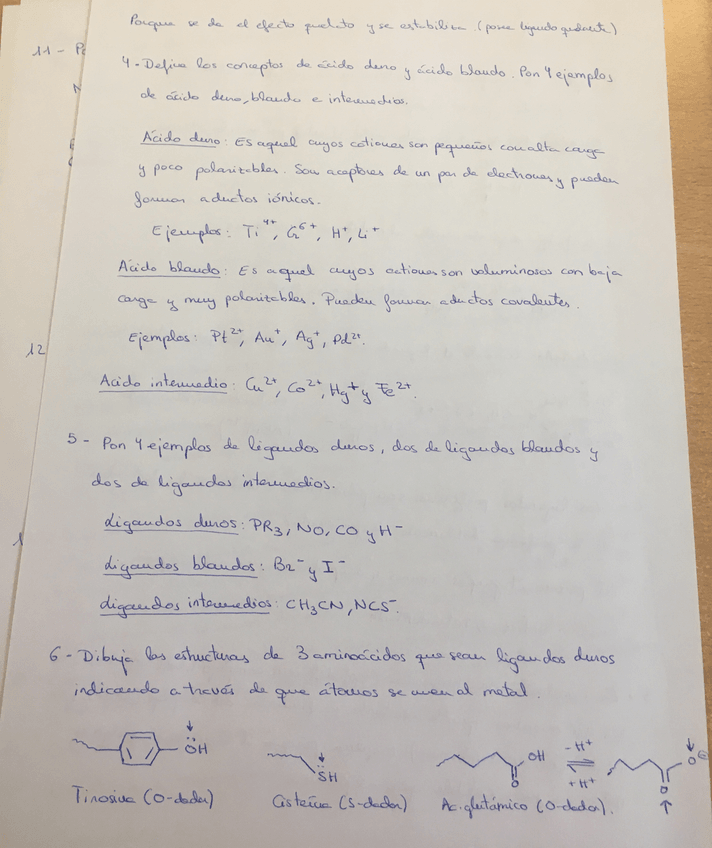 Porque se da el efecto quelato y se estabiliza. (posee ligando quelante)
11-
4- Define los conceptos de ácido duro y ácido blando. Pon 4 ejemplos
de ácido duro, blando e intermedios.
Ácido duro: Es aquel cuyos cationes son pequeños con alta carga
y poco polarizables. Son aceptores de un par de electrones y pueden
formar aductos iónicos.
Ejemplos: Ti⁴⁺, Cr⁶⁺, H⁺, Li⁺
Ácido blando: Es aquel cuyos cationes son voluminosos con baja
carga y muy polarizables. Pueden formar aductos covalentes.
Ejemplos: Pt²⁺, Au⁺, Ag⁺, Pd²⁺.
12
Acido intermedio: Cu²⁺, Co²⁺, Hg⁺ y Fe²⁺.
5- Pon 4 ejemplos de ligandos duros, dos de ligandos blandos y
dos de ligandos intermedios.
Ligandos duros: PR₃, NO, CO y H⁻
Ligandos blandos: Br⁻ y I⁻
Ligandos intermedios: CH₃CN, NCS⁻.
6- Dibuja las estructuras de 3 aminoácidos que sean ligandos duros
indicando a través de que átomos se unen al metal.
↓ ÖH
↓ SH
OH O
-H⁺ ⇌ +H⁺
↓ O⊖ O ↑
Tirosina (O-dador) Cisteína (S-dador) Ac. glutámico (O-dador).